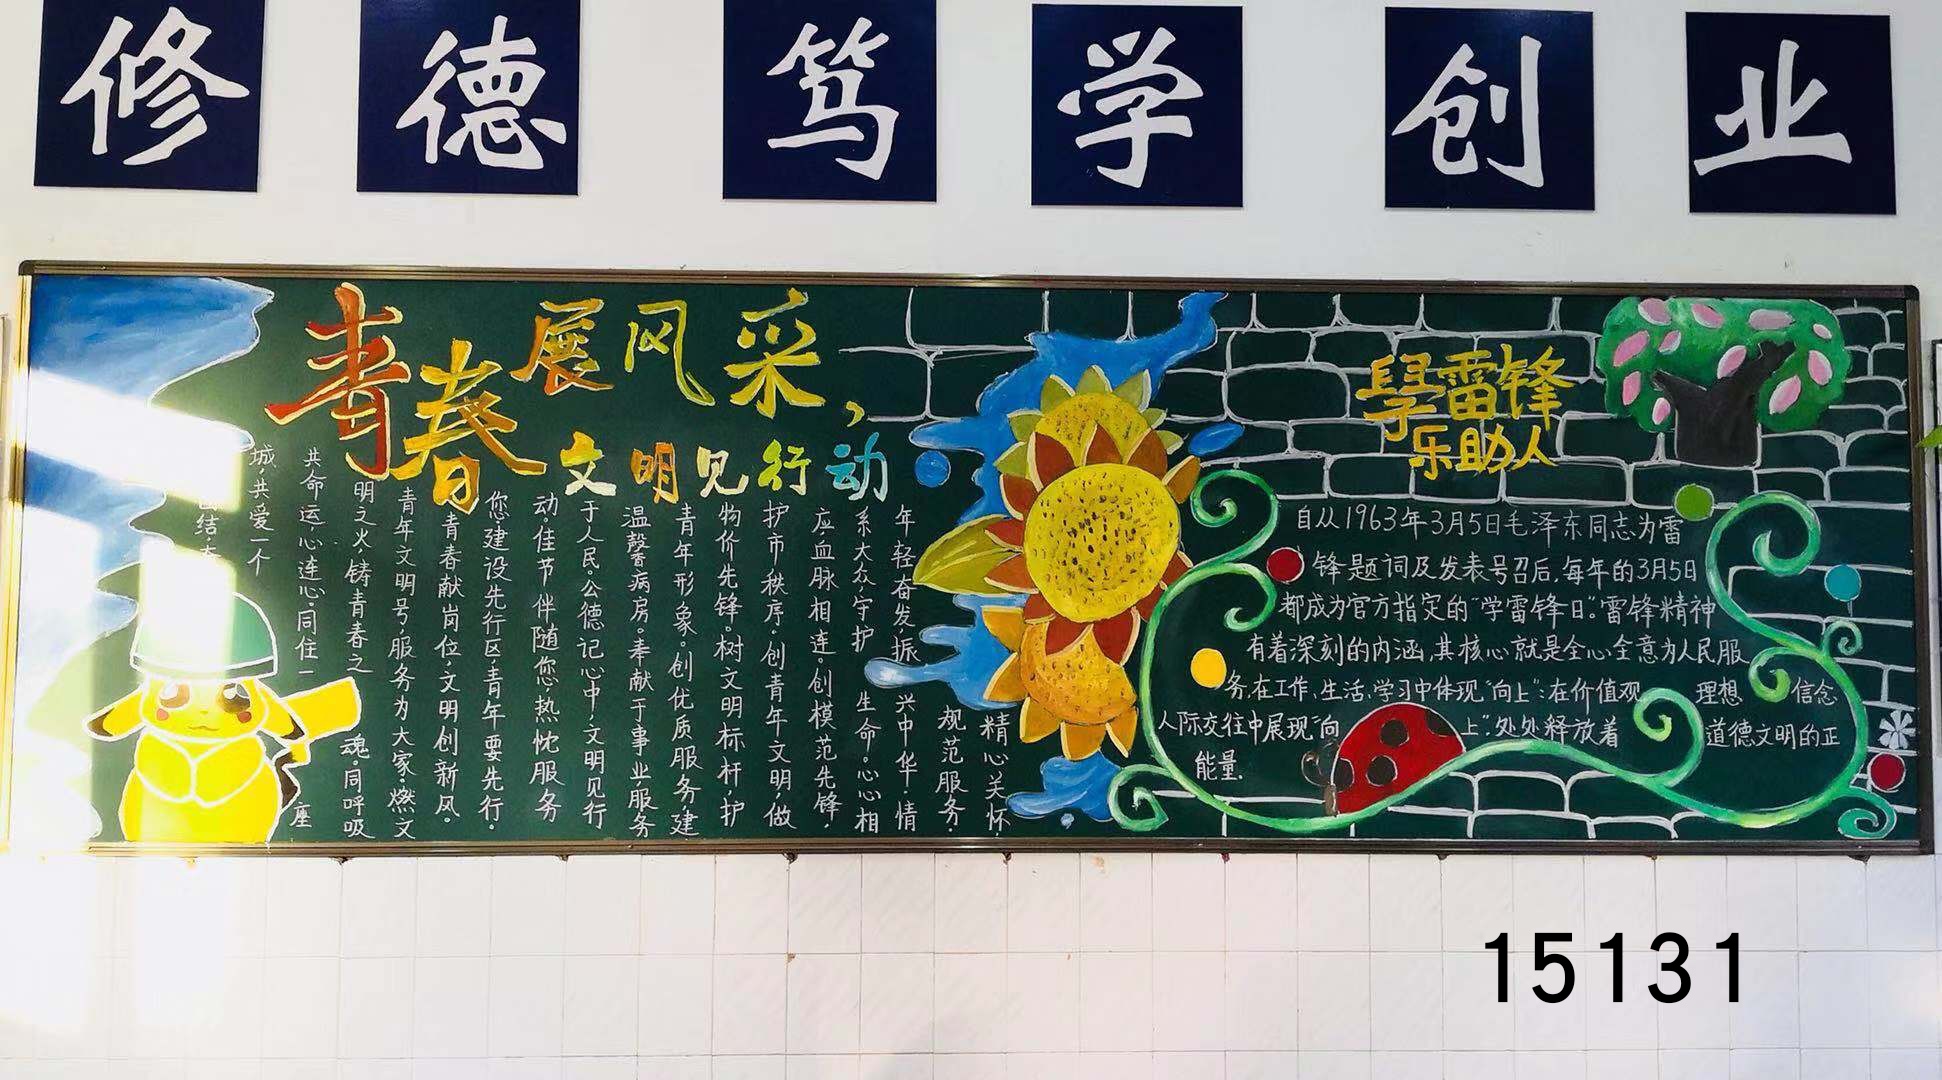 修德笃学创业
青春展风采，
文明见行动
城，共爱一个
共命运，心连心，同住一座
明之火，铸青春之魂，同呼吸
青年文明号，服务为大家。燃文
青春献岗位，文明创新风。
您。建设先行区，青年要先行。
动。佳节伴随您，热忱服务
于人民。公德记心中，文明见行
温馨病房。奉献于事业，服务
青年形象。创优质服务，建
物价先锋。树文明标杆，护
护市秩序，创青年文明，做
应，血脉相连。创模范先锋，
系大众，守护生命。心心相
年轻奋发，振兴中华，情
规范服务，
精心关怀，
學雷锋
乐助人
自从1963年3月5日毛泽东同志为雷
锋题词及发表号召后，每年的3月5日
都成为官方指定的“学雷锋日”。雷锋精神
有着深刻的内涵，其核心就是全心全意为人民服
务，在工作、生活、学习中体现“向上”；在价值观 理想 信念
人际交往中展现“向上”，处处释放着道德文明的正
能量.
15131